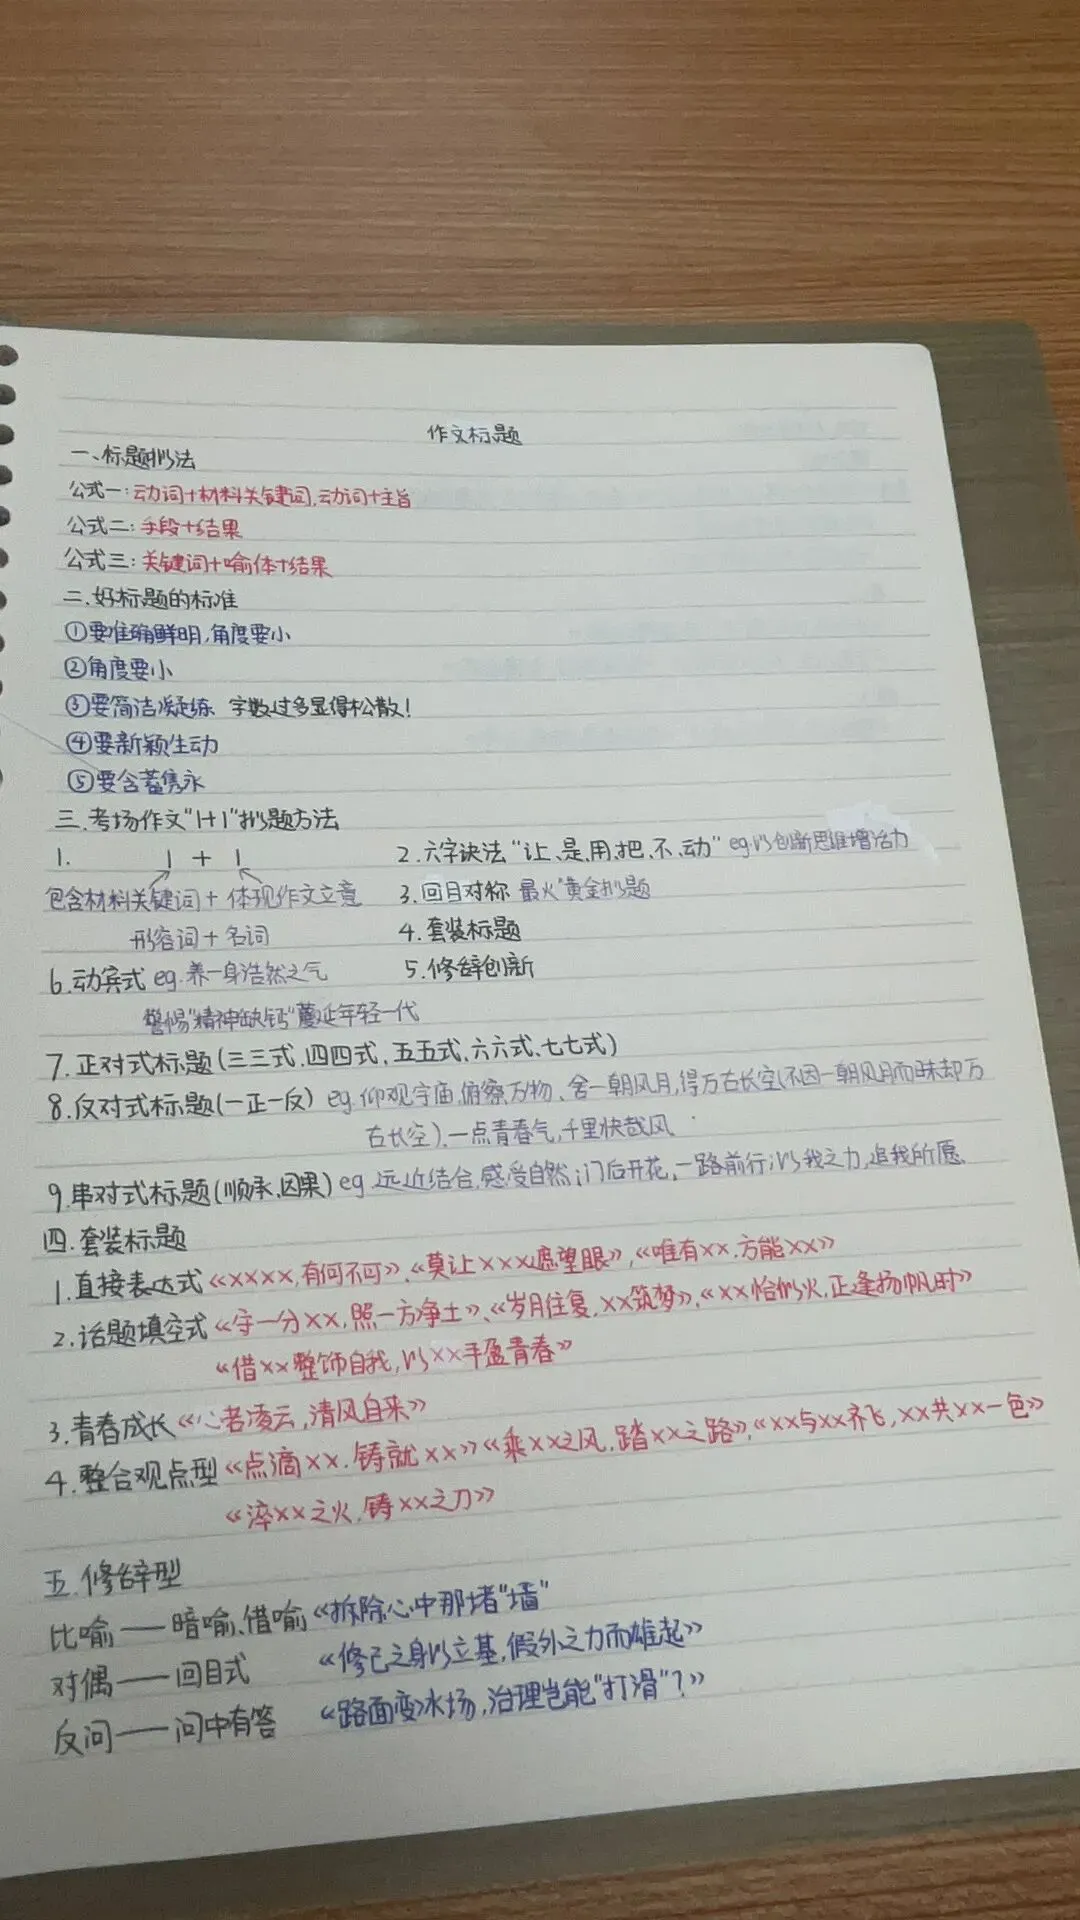 作文标题
一、标题拟法
公式一:动词+材料关键词,动词+主旨
公式二:手段+结果
公式三:关键词+喻体+结果
二.好标题的标准
①要准确鲜明,角度要小
②角度要小
③要简洁凝练 字数过多显得松散!
④要新颖生动
⑤要含蓄隽永
三.考场作文"1+1"拟题方法
1. 1 + 1
2.六字诀法"让、是、用、把、不、动" eg.以创新思维增活力
包含材料关键词+体现作文立意
3.回目对称 最火"黄金拟题
形容词+名词
4.套装标题
5.修辞创新
6.动宾式 eg.养一身浩然之气
警惕"精神缺钙"蔓延年轻一代
7.正对式标题(三三式.四四式,五五式,六六式,七七式)
8.反对式标题(一正一反) eg.仰观宇庙,俯察万物、舍一朝风月,得万古长空(不因一朝风月而昧却万
古长空),一点青春气,千里快哉风
9.串对式标题(顺承,因果) eg.远近结合,感受自然;门后开花,一路前行;以我之力,追我所愿.
四.套装标题
1.直接表达式《××××,有何不可》、《莫让×××遮望眼》,《唯有××.方能××》
2.话题填空式《守一分××,照一方净土》、《岁月往复,××筑梦》,《××恰似火,正逢扬帆时》
《借××整饰自我,以××手盈青春》
3.青春成长《心若凌云,清风自来》
4.整合观点型《点滴××.铸就××》《乘××之风,踏××之路》,《××与××齐飞,××共××一色》
《淬××之火,铸××之刀》
五.修辞型
比喻——暗喻、借喻《拆除心中那堵"墙"
对偶——回目式 《修己之身以立基,假外之力而雄起》
反问——问中有答 《路面变冰场,治理岂能"打滑"?》